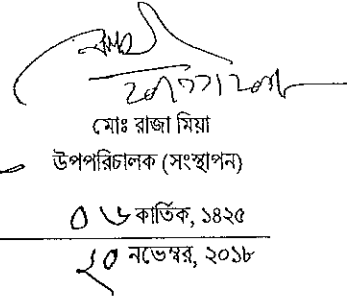 মোঃ রাজা মিয়া
উপপরিচালক (সংস্থাপন)
০৬ কার্তিক, ১৪২৫
২০ নভেম্বর, ২০১৮